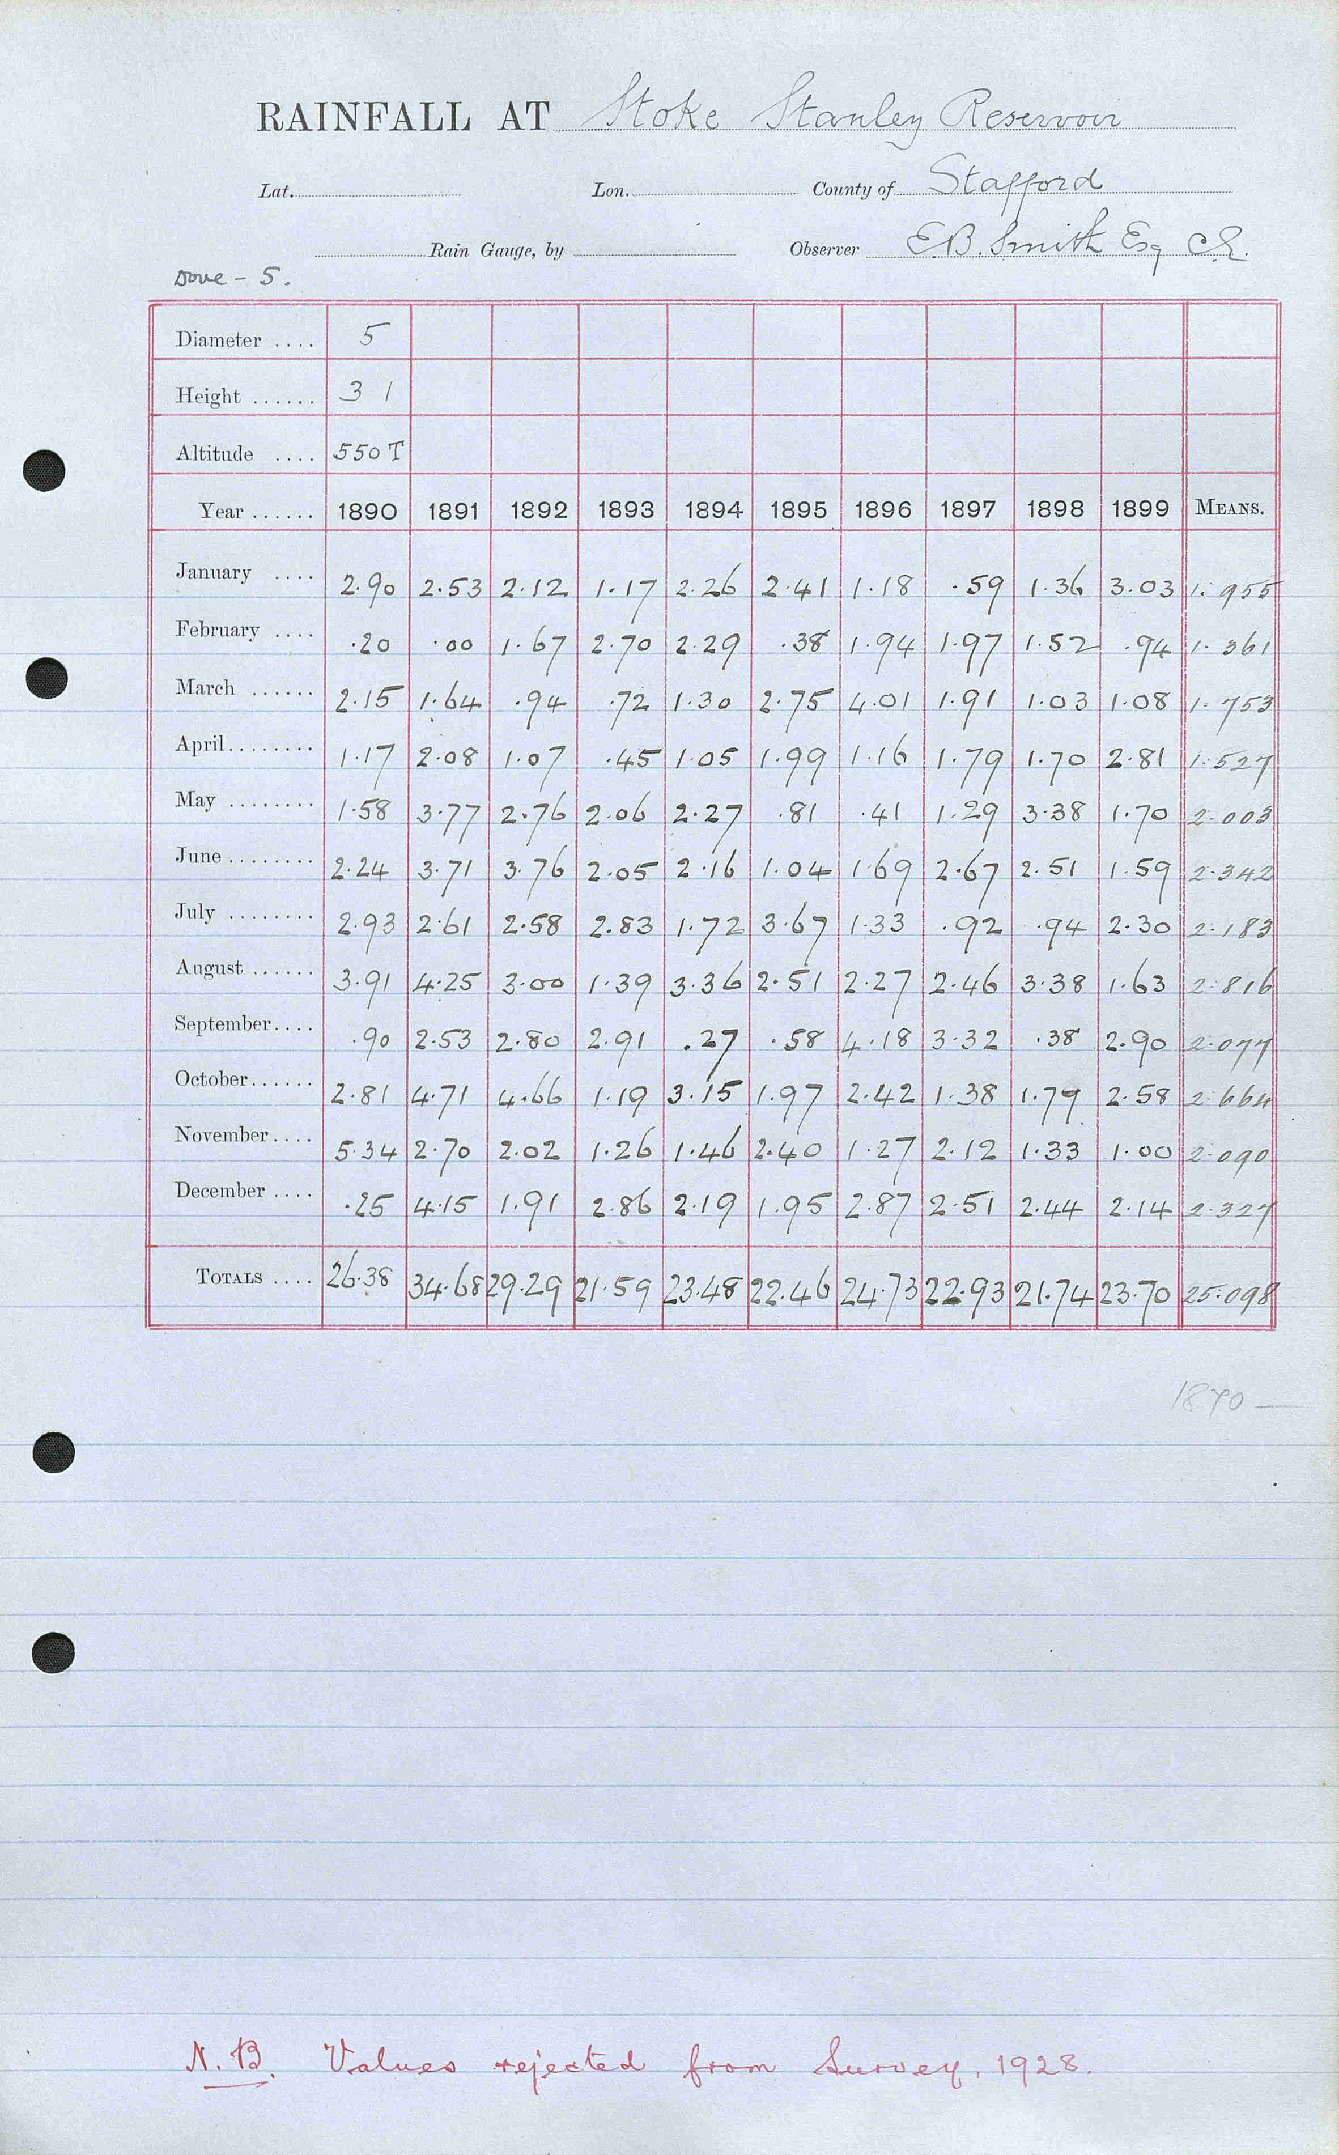 RAINFALL AT Stoke Stanley Reservoir
Lat. Lon. County of Stafford
Rain Gauge, by Observer E.B. Smith Esq C.E.
Dove - 5.
Diameter .... 5
Height ...... 3 1
Altitude .... 550 T
Year ...... 1890 1891 1892 1893 1894 1895 1896 1897 1898 1899 MEANS.
January .... 2.90 2.53 2.12 1.17 2.26 2.41 1.18 .59 1.36 3.03 1.955
February .... .20 .00 1.67 2.70 2.29 .38 1.94 1.97 1.52 .94 1.361
March ...... 2.15 1.64 .94 .72 1.30 2.75 4.01 1.91 1.03 1.08 1.753
April ........ 1.17 2.08 1.07 .45 1.05 1.99 1.16 1.79 1.70 2.81 1.527
May ........ 1.58 3.77 2.76 2.06 2.27 .81 .41 1.29 3.38 1.70 2.003
June ........ 2.24 3.71 3.76 2.05 2.16 1.04 1.69 2.67 2.51 1.59 2.342
July ........ 2.93 2.61 2.58 2.83 1.72 3.67 1.33 .92 .94 2.30 2.183
August ...... 3.91 4.25 3.00 1.39 3.36 2.51 2.27 2.46 3.38 1.63 2.816
September .... .90 2.53 2.80 2.91 .27 .58 4.18 3.32 .38 2.90 2.077
October ...... 2.81 4.71 4.66 1.19 3.15 1.97 2.42 1.38 1.79 2.58 2.664
November .... 5.34 2.70 2.02 1.26 1.46 2.40 1.27 2.12 1.33 1.00 2.090
December .... .25 4.15 1.91 2.86 2.19 1.95 2.87 2.51 2.44 2.14 2.327
TOTALS .... 26.38 34.68 29.29 21.59 23.48 22.46 24.73 22.93 21.74 23.70 25.098
1870 —
N.B. Values rejected from Survey, 1928.